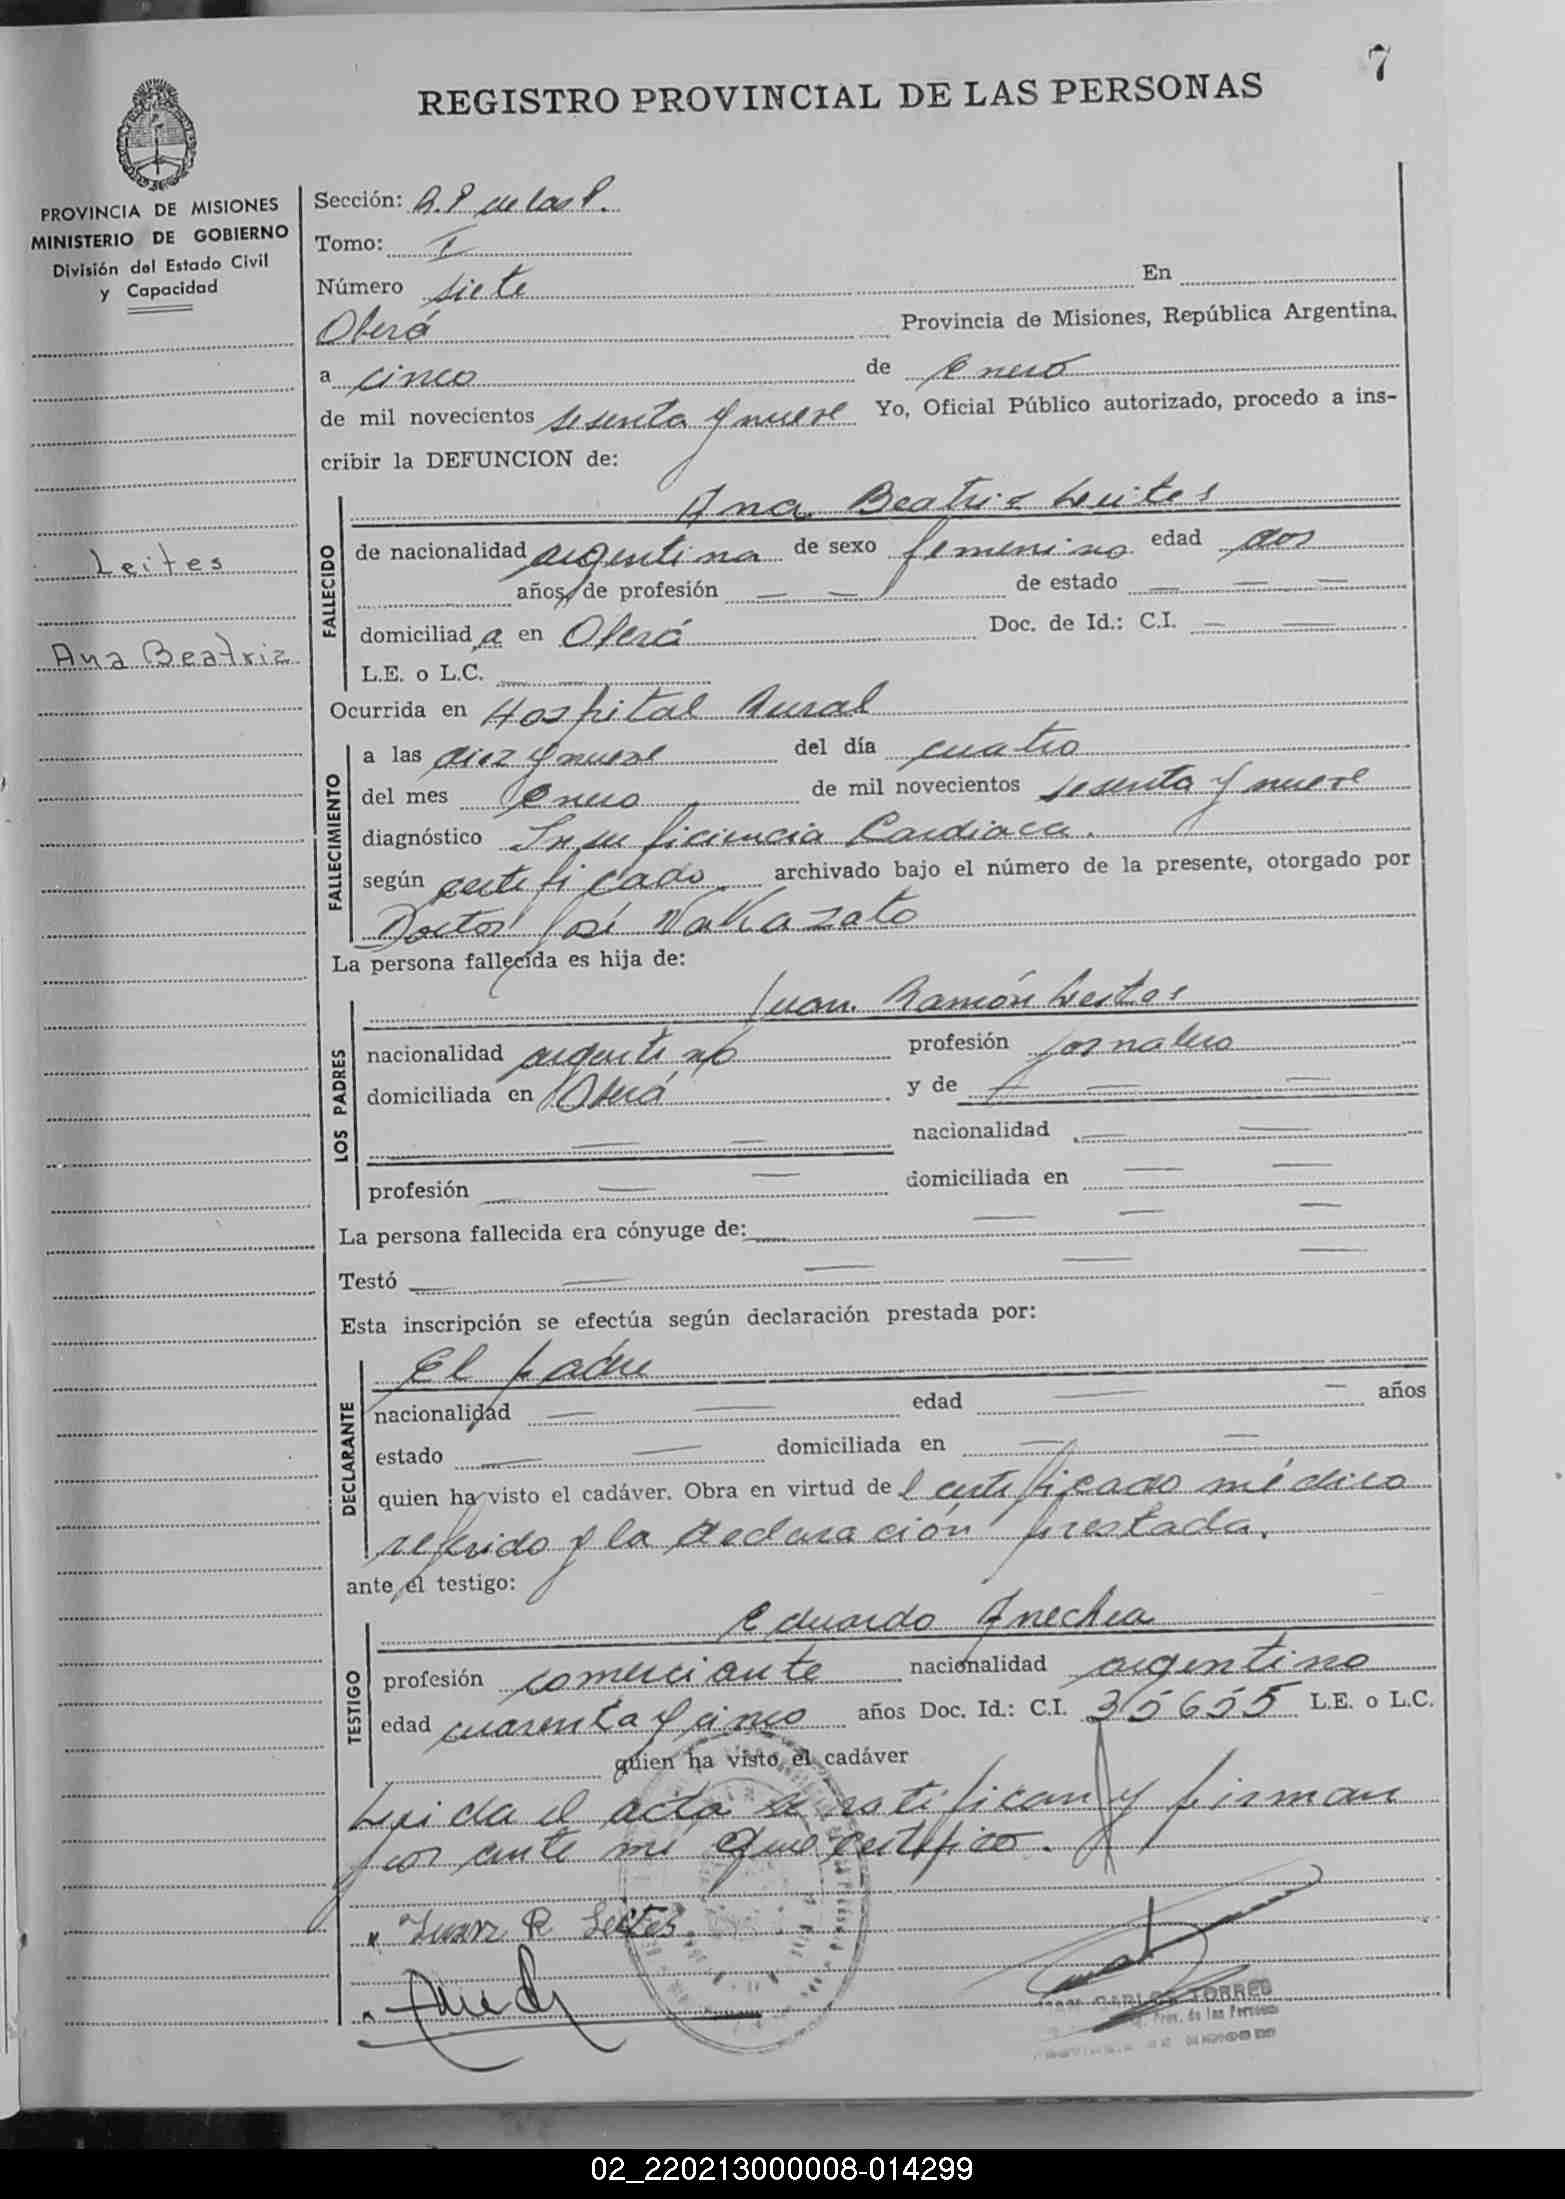 7
REGISTRO PROVINCIAL DE LAS PERSONAS
PROVINCIA DE MISIONES
MINISTERIO DE GOBIERNO
División del Estado Civil
y Capacidad
Leites
Ana Beatriz
Sección: R.P de las P.
Tomo: I
Número siete En
Oberá Provincia de Misiones, República Argentina,
a cinco de Enero
de mil novecientos sesenta y nueve Yo, Oficial Público autorizado, procedo a ins-
cribir la DEFUNCION de:
FALLECIDO
Ana Beatriz Leites
de nacionalidad argentina de sexo femenino edad dos
años, de profesión — — de estado — — —
domiciliada en Oberá Doc. de Id.: C.I. — —
L.E. o L.C.
Ocurrida en Hospital Rural
FALLECIMIENTO
a las diez y nueve del día cuatro
del mes Enero de mil novecientos sesenta y nueve
diagnóstico Insuficiencia Cardiaca.
según certificado archivado bajo el número de la presente, otorgado por
Doctor José Nakazato
La persona fallecida es hija de:
LOS PADRES
Juan Ramón Leites
nacionalidad argentino profesión jornalero
domiciliada en Oberá y de — — —
— — nacionalidad — —
profesión — — domiciliada en — —
La persona fallecida era cónyuge de: — — —
Testó — — — — —
Esta inscripción se efectúa según declaración prestada por:
DECLARANTE
El padre
nacionalidad — — edad — — años
estado — — domiciliada en — —
quien ha visto el cadáver. Obra en virtud del certificado médico
referido y la declaración prestada.
ante el testigo:
TESTIGO
Eduardo Anechea
profesión comerciante nacionalidad argentino
edad cuarenta y cinco años Doc. Id.: C.I. 35655 L.E. o L.C.
quien ha visto el cadáver
Leida el acta se ratifican y firman
por ante mi que certifico.
Juan R Leites
CARLOS TORRES
Prov. de las Personas
02_220213000008-014299